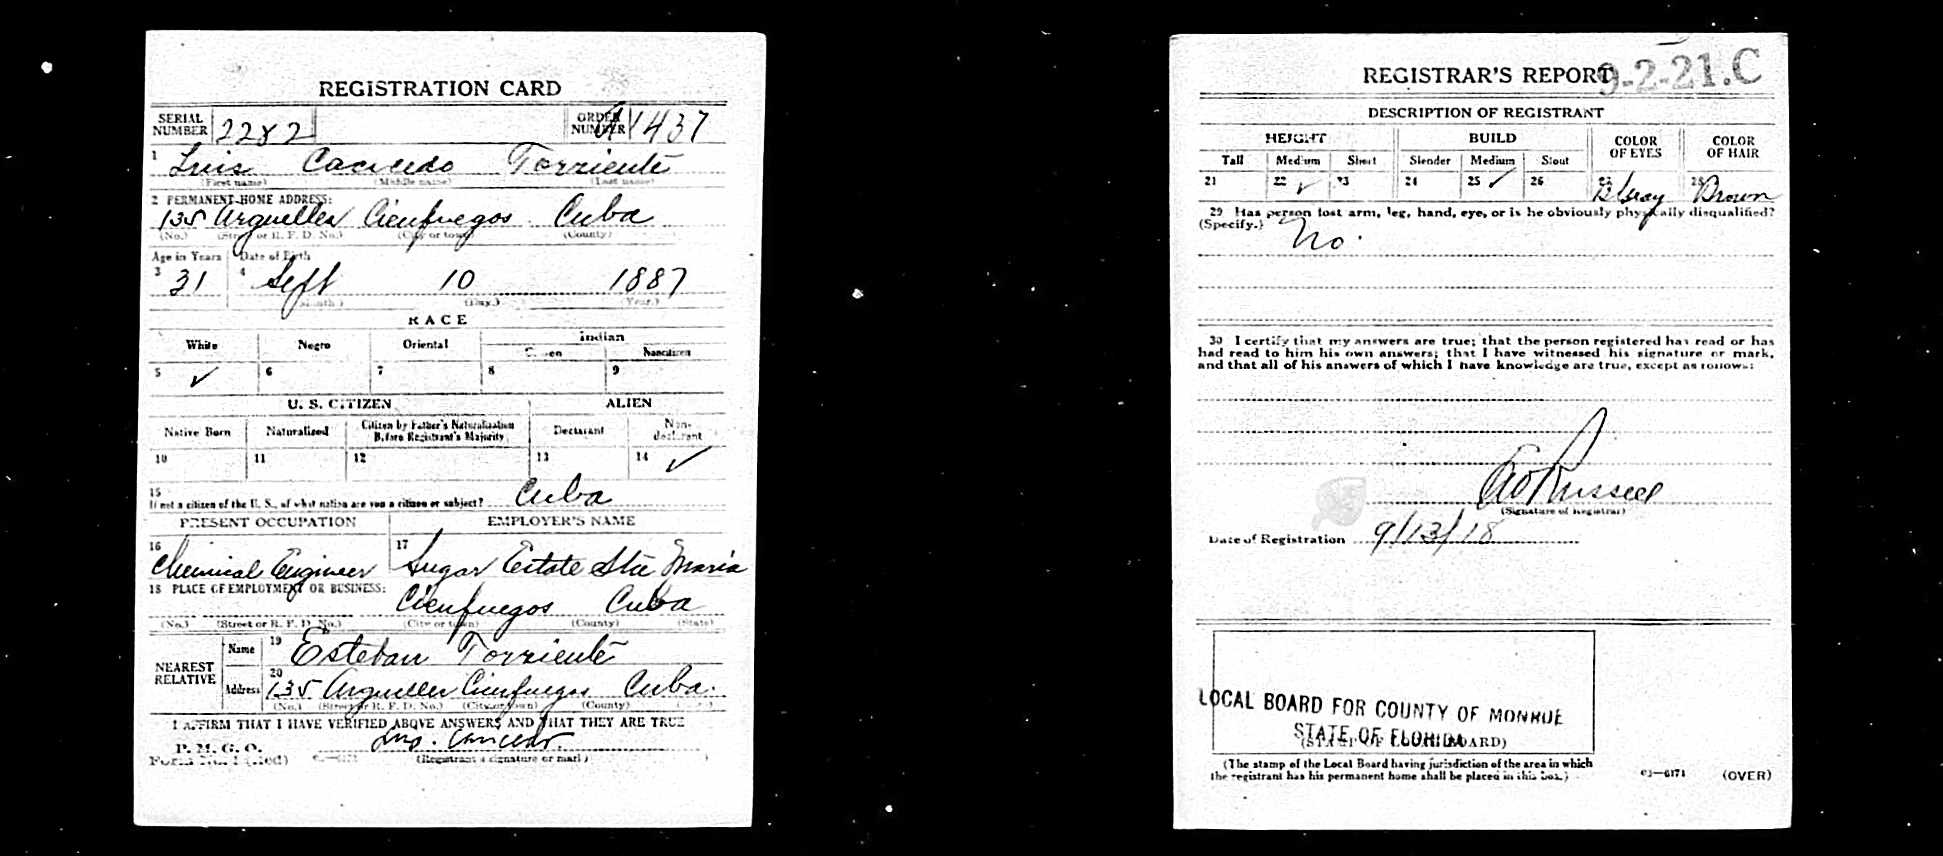 REGISTRATION CARD
SERIAL NUMBER 2282 ORDER NUMBER A1437
1 Luis Torriente
(First name) (Middle name) (Last name)
2 PERMANENT HOME ADDRESS:
135 Arguelles Cienfuegos Cuba
(No.) (Street or R. F. D. No.) (City or town) (County)
Age in Years Date of Birth
3 31 4 Sept 10 1887
(Month.) (Day.) (Year.)
RACE
White Negro Oriental Indian
Citizen Noncitizen
5 ✓ 6 7 8 9
U. S. CITIZEN ALIEN
Native Born Naturalized Citizen by Father's Naturalization Before Registrant's Majority Declarant Non-declarant
10 11 12 13 14 ✓
15 If not a citizen of the U. S., of what nation are you a citizen or subject? Cuba
PRESENT OCCUPATION EMPLOYER'S NAME
16 Chemical Engineer 17 Sugar Estate Sta Maria
18 PLACE OF EMPLOYMENT OR BUSINESS:
Cienfuegos Cuba
(No.) (Street or R. F. D. No.) (City or town) (County) (State)
NEAREST RELATIVE Name 19 Esteban Torriente
Address 20 135 Arguelles Cienfuegos Cuba.
(No.) (Street or R. F. D. No.) (City or town) (County)
I AFFIRM THAT I HAVE VERIFIED ABOVE ANSWERS AND THAT THEY ARE TRUE
P. M. G. O.
Form No. 1 (Red) 03—6171 (Registrant's signature or mark)
REGISTRAR'S REPORT 9-2-21.C
DESCRIPTION OF REGISTRANT
HEIGHT BUILD COLOR OF EYES COLOR OF HAIR
Tall Medium Short Slender Medium Stout
21 22 ✓ 23 24 25 ✓ 26 27 Gray 28 Brown
29 Has person lost arm, leg, hand, eye, or is he obviously physically disqualified?
(Specify.) No.
30 I certify that my answers are true; that the person registered has read or has
had read to him his own answers; that I have witnessed his signature or mark,
and that all of his answers of which I have knowledge are true, except as follows:
Russell
(Signature of Registrar)
Date of Registration 9/13/18
LOCAL BOARD FOR COUNTY OF MONROE
STATE OF FLORIDA
(STAMP OF LOCAL BOARD)
(The stamp of the Local Board having jurisdiction of the area in which
the registrant has his permanent home shall be placed in this box.) 03—6171 (OVER)